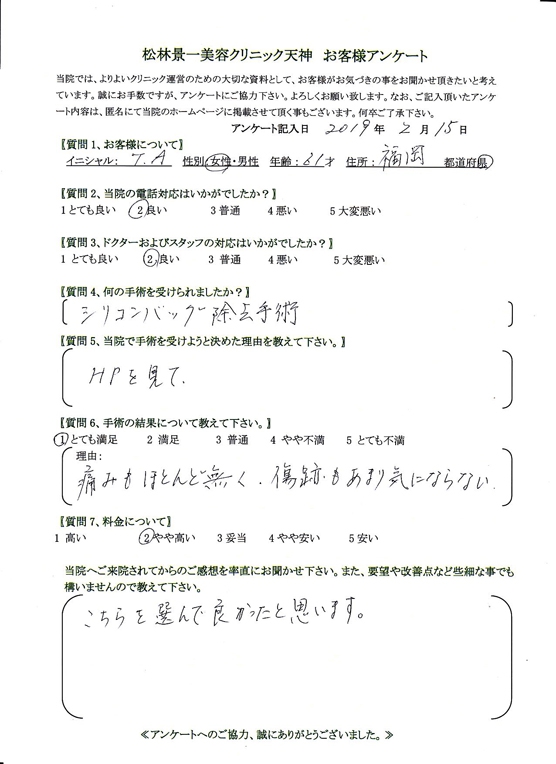 松林景一美容クリニック天神 お客様アンケート
当院では、よりよいクリニック運営のための大切な資料として、お客様がお気づきの事をお聞かせ頂きたいと考え
ています。誠にお手数ですが、アンケートにご協力下さい。よろしくお願い致します。なお、ご記入頂いたアンケ
ート内容は、匿名にて当院のホームページに掲載させて頂く事もございます。何卒ご了承下さい。
アンケート記入日 2019 年 2 月 15 日
【質問1、お客様について】
イニシャル: T.A 性別 女性・男性 年齢:61才 住所: 福岡 都道府県
【質問2、当院の電話対応はいかがでしたか?】
1とても良い 2良い 3普通 4悪い 5大変悪い
【質問3、ドクターおよびスタッフの対応はいかがでしたか?】
1 とても良い 2良い 3 普通 4悪い 5大変悪い
【質問4、何の手術を受けられましたか?】
シリコンバッグ除去手術
【質問5、当院で手術を受けようと決めた理由を教えて下さい。】
HPを見て、
【質問6、手術の結果について教えて下さい。】
1とても満足 2 満足 3 普通 4 やや不満 5 とても不満
理由:
痛みもほとんど無く、傷跡もあまり気にならない
【質問7、料金について】
1 高い 2やや高い 3妥当 4やや安い 5安い
当院へご来院されてからのご感想を率直にお聞かせ下さい。また、要望や改善点など些細な事でも
構いませんので教えて下さい。
こちらを選んで良かったと思います。
≪アンケートへのご協力、誠にありがとうございました。≫